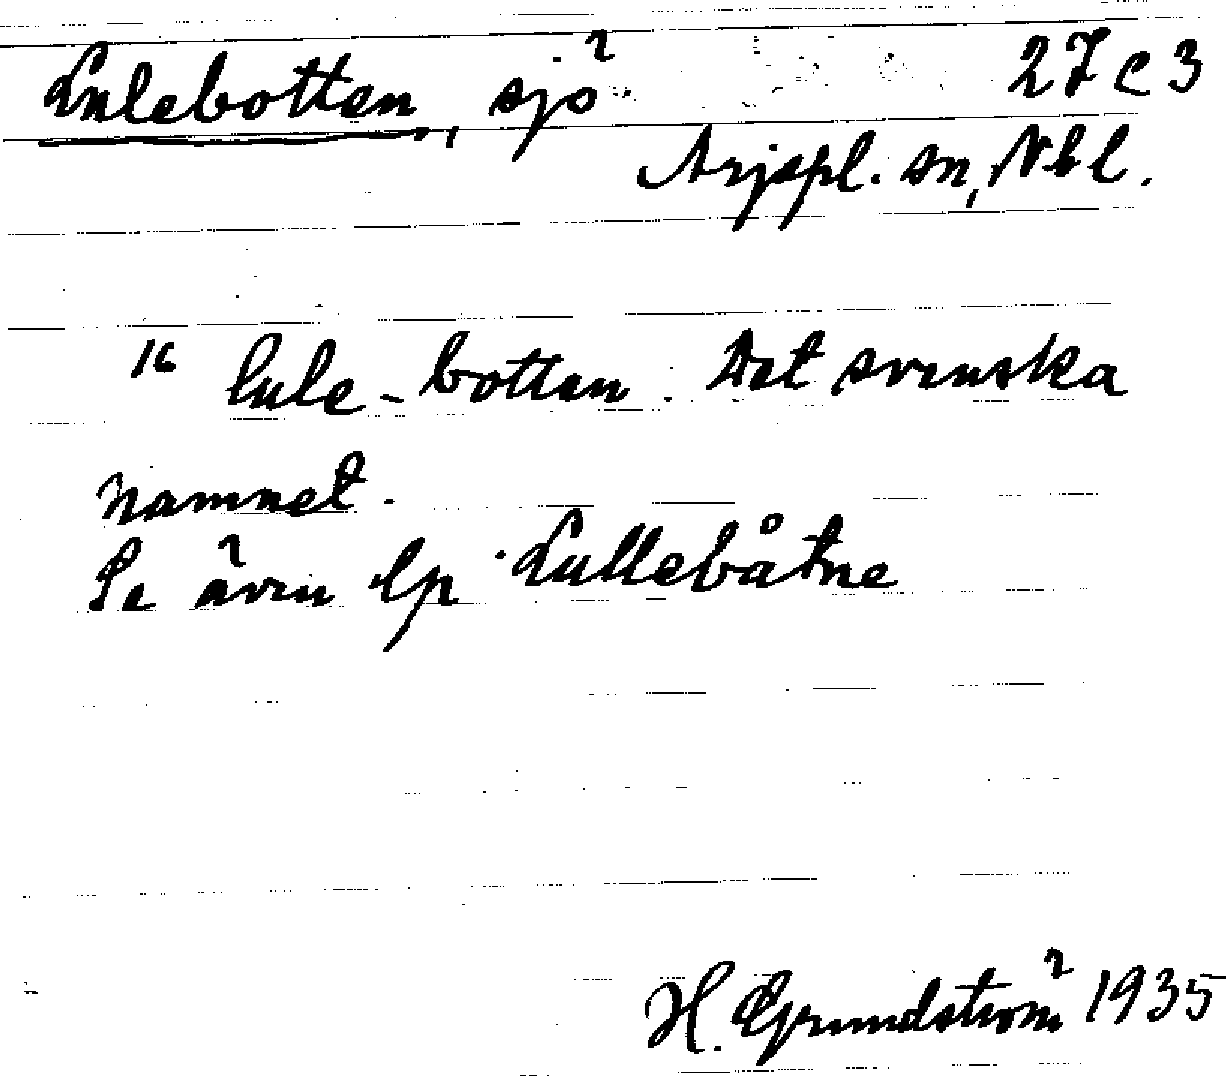 Lulebotten, sjö 27 C 3
Arjepl. sn, Nbl.
16 lule-botten. Det svenska
namnet.
Se även lp Lullebåtne
H. Grundström 1935